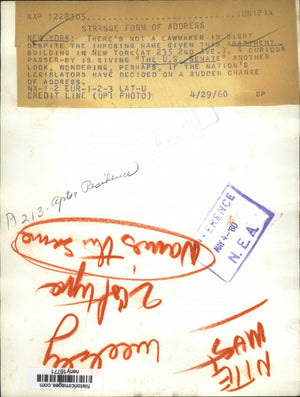 NXP 1228303 UNIPIX
STRANGE FORM OF ADDRESS
NEW YORK: THERE'S NOT A LAWMAKER IN SIGHT
DESPITE THE IMPOSING NAME GIVEN THIS APARTMENT
BUILDING IN NEW YORK (AT 235 2ND AVE.). A CURIOUS
PASSER-BY IS GIVING "THE U.S. SENATE" ANOTHER
LOOK, WONDERING, PERHAPS, IF THE NATION'S
LEGISLATORS HAVE DECIDED ON A SUDDEN CHANGE
OF ADDRESS.
NX-2-2 EUR-1-2-3 LAT-U
CREDIT LINE (UPI PHOTO) 4/29/60 SP
A 213-
Residence
REFERENCE
MAY 4-60
N.E.A.
Name's the same
weekey
NITE
historicimages.com
neny16771